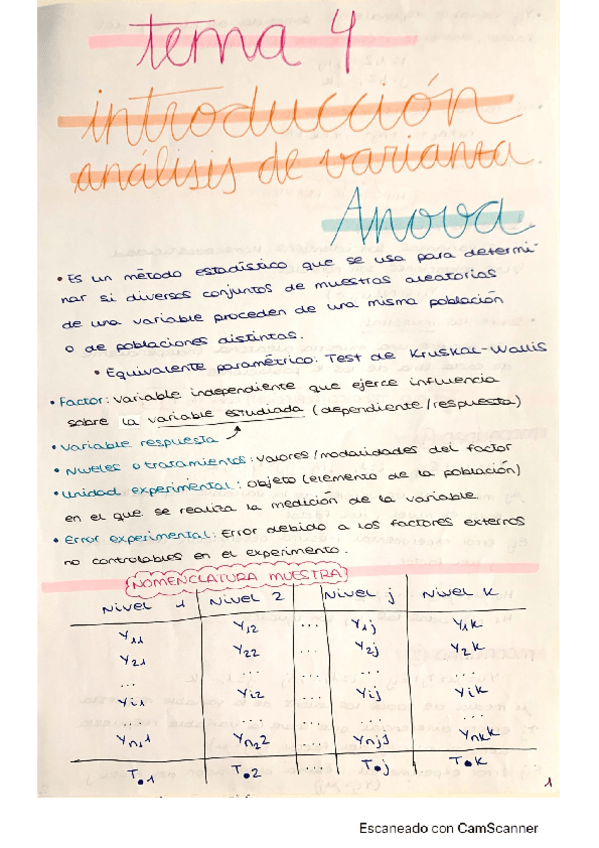 tema 4
introducción
análisis de varianza.
Anova
• Es un método estadístico que se usa para determi-
nar si diversos conjuntos de muestras aleatorias
de una variable proceden de una misma población
o de poblaciones distintas.
• Equivalente paramétrico: Test de Kruskal-Wallis
• Factor: variable independiente que ejerce influencia
sobre la variable estudiada (dependiente/respuesta)
• variable respuesta
• Niveles o tratamientos: valores/modalidades del factor
• unidad experimental: objeto (elemento de la población)
en el que se realiza la medición de la variable.
• Error experimental: Error debido a los factores externos
no controlables en el experimento.
NOMENCLATURA MUESTRA
Nivel 1 Nivel 2 ... Nivel j Nivel k
Y11 Y12 ... Y1j Y1k
Y21 Y22 ... Y2j Y2k
... ... ... ... ...
Yi1 Yi2 ... Yij Yik
... ... ... ... ...
Yn11 Yn22 ... Ynjj Ynkk
T•1 T•2 ... T•j T•k
1
Escaneado con CamScanner